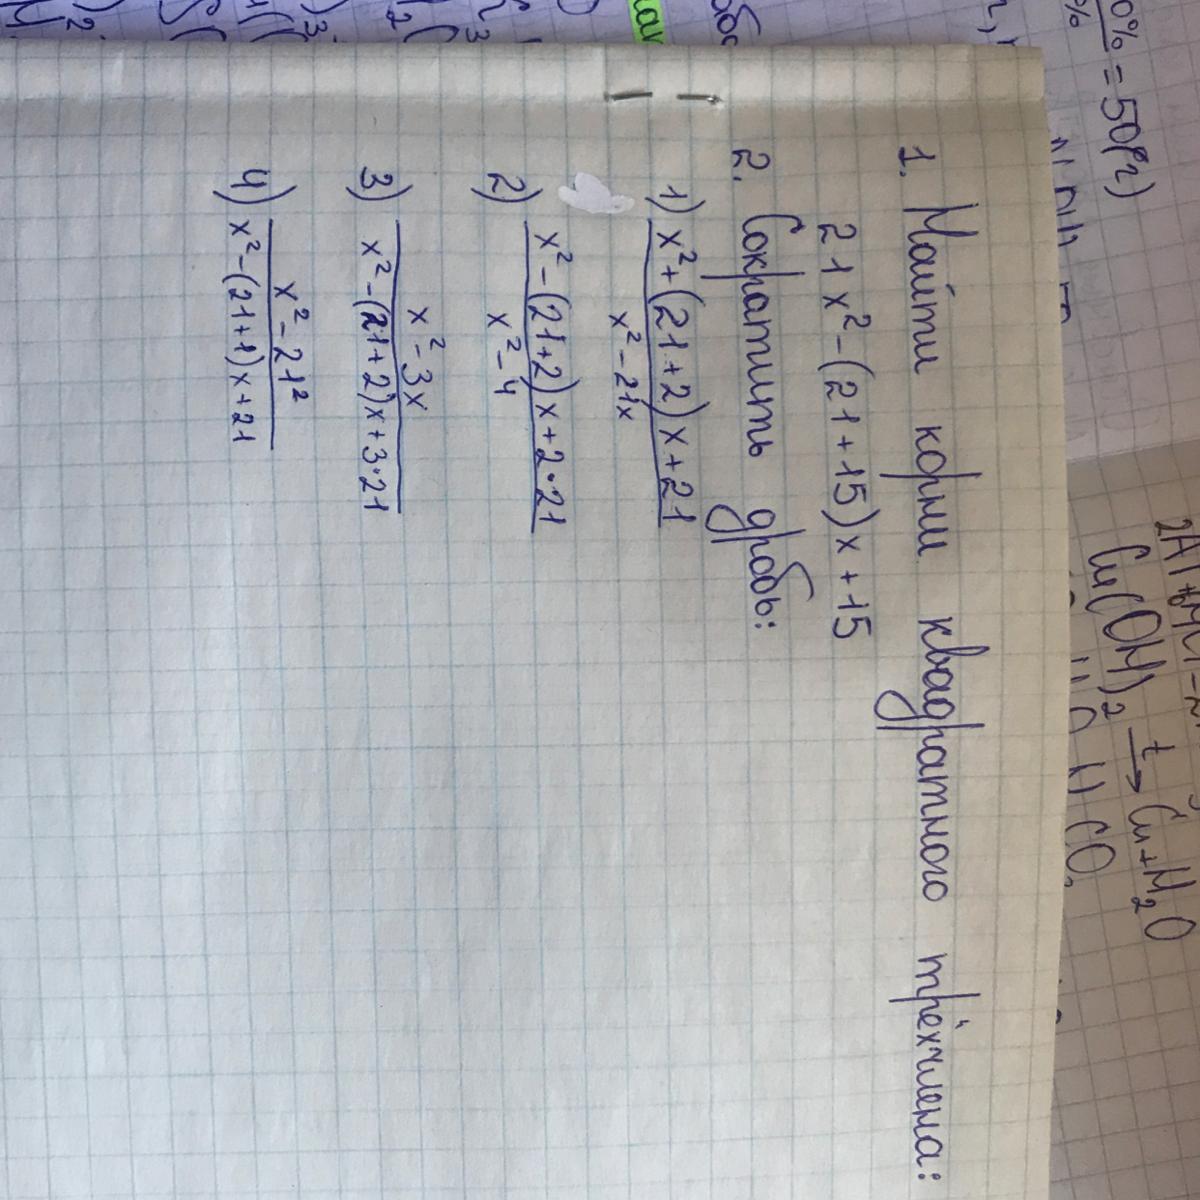 1. Найти корни квадратного трёхчлена:
21x² - (21+15)x + 15
2. Сократить дробь:
1) x² + (21+2)x + 21
x² - 21x
2) x² - (21+2)x + 2·21
x² - 4
3) x² - 3x
x² - (21+2)x + 3·21
4) x² - 21²
x² - (21+1)x + 21
0% = 50(г)
%
Cu(OH)₂ t→ Cu + H₂O